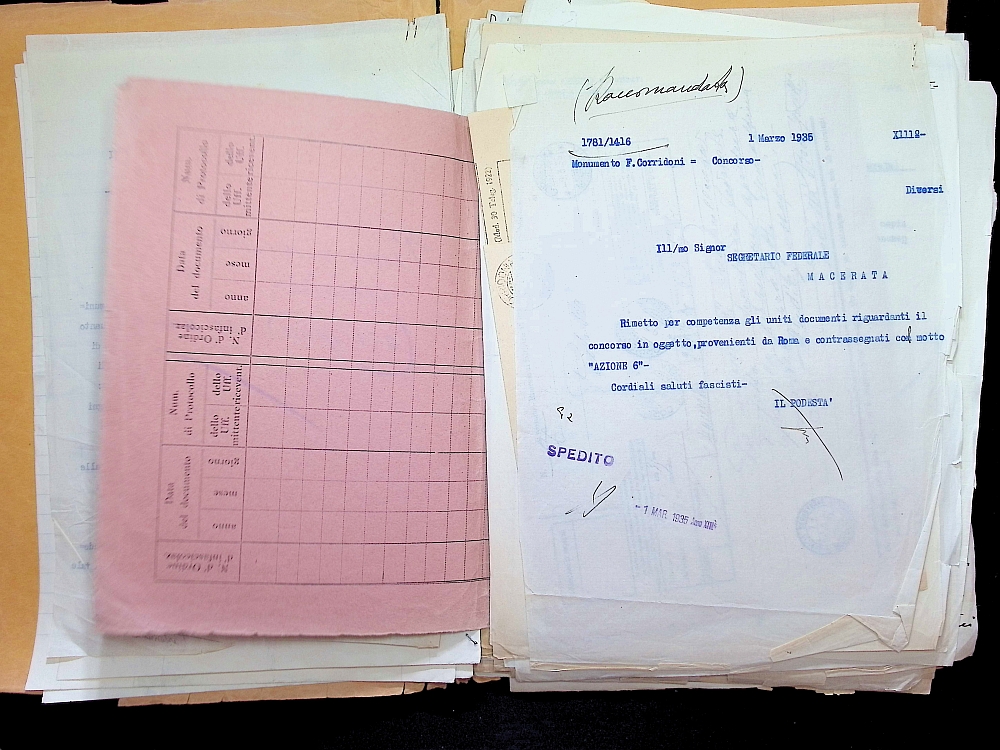 (Raccomandata)
1781/1416 1 Marzo 1935 XIII°-
Monumento F.Corridoni = Concorso-
Diversi
Ill/mo Signor
SEGRETARIO FEDERALE
MACERATA
Rimetto per competenza gli uniti documenti riguardanti il
concorso in oggetto,provenienti da Roma e contrassegnati col motto
"AZIONE 6"-
Cordiali saluti fascisti-
IL PODESTA'
SPEDITO
- 1 MAR. 1935 Anno XIII°
Num.
di Protocollo
dello
Uff.
mittente
dello
Uff.
ricevent.
Data
del documento
giorno
mese
anno
N. d'Ordine
d'infascicolaz
Num.
di Protocollo
dello
Uff.
mittente
dello
Uff.
ricevent.
Data
del documento
giorno
mese
anno
N. d'Ordine
d'infascicolaz